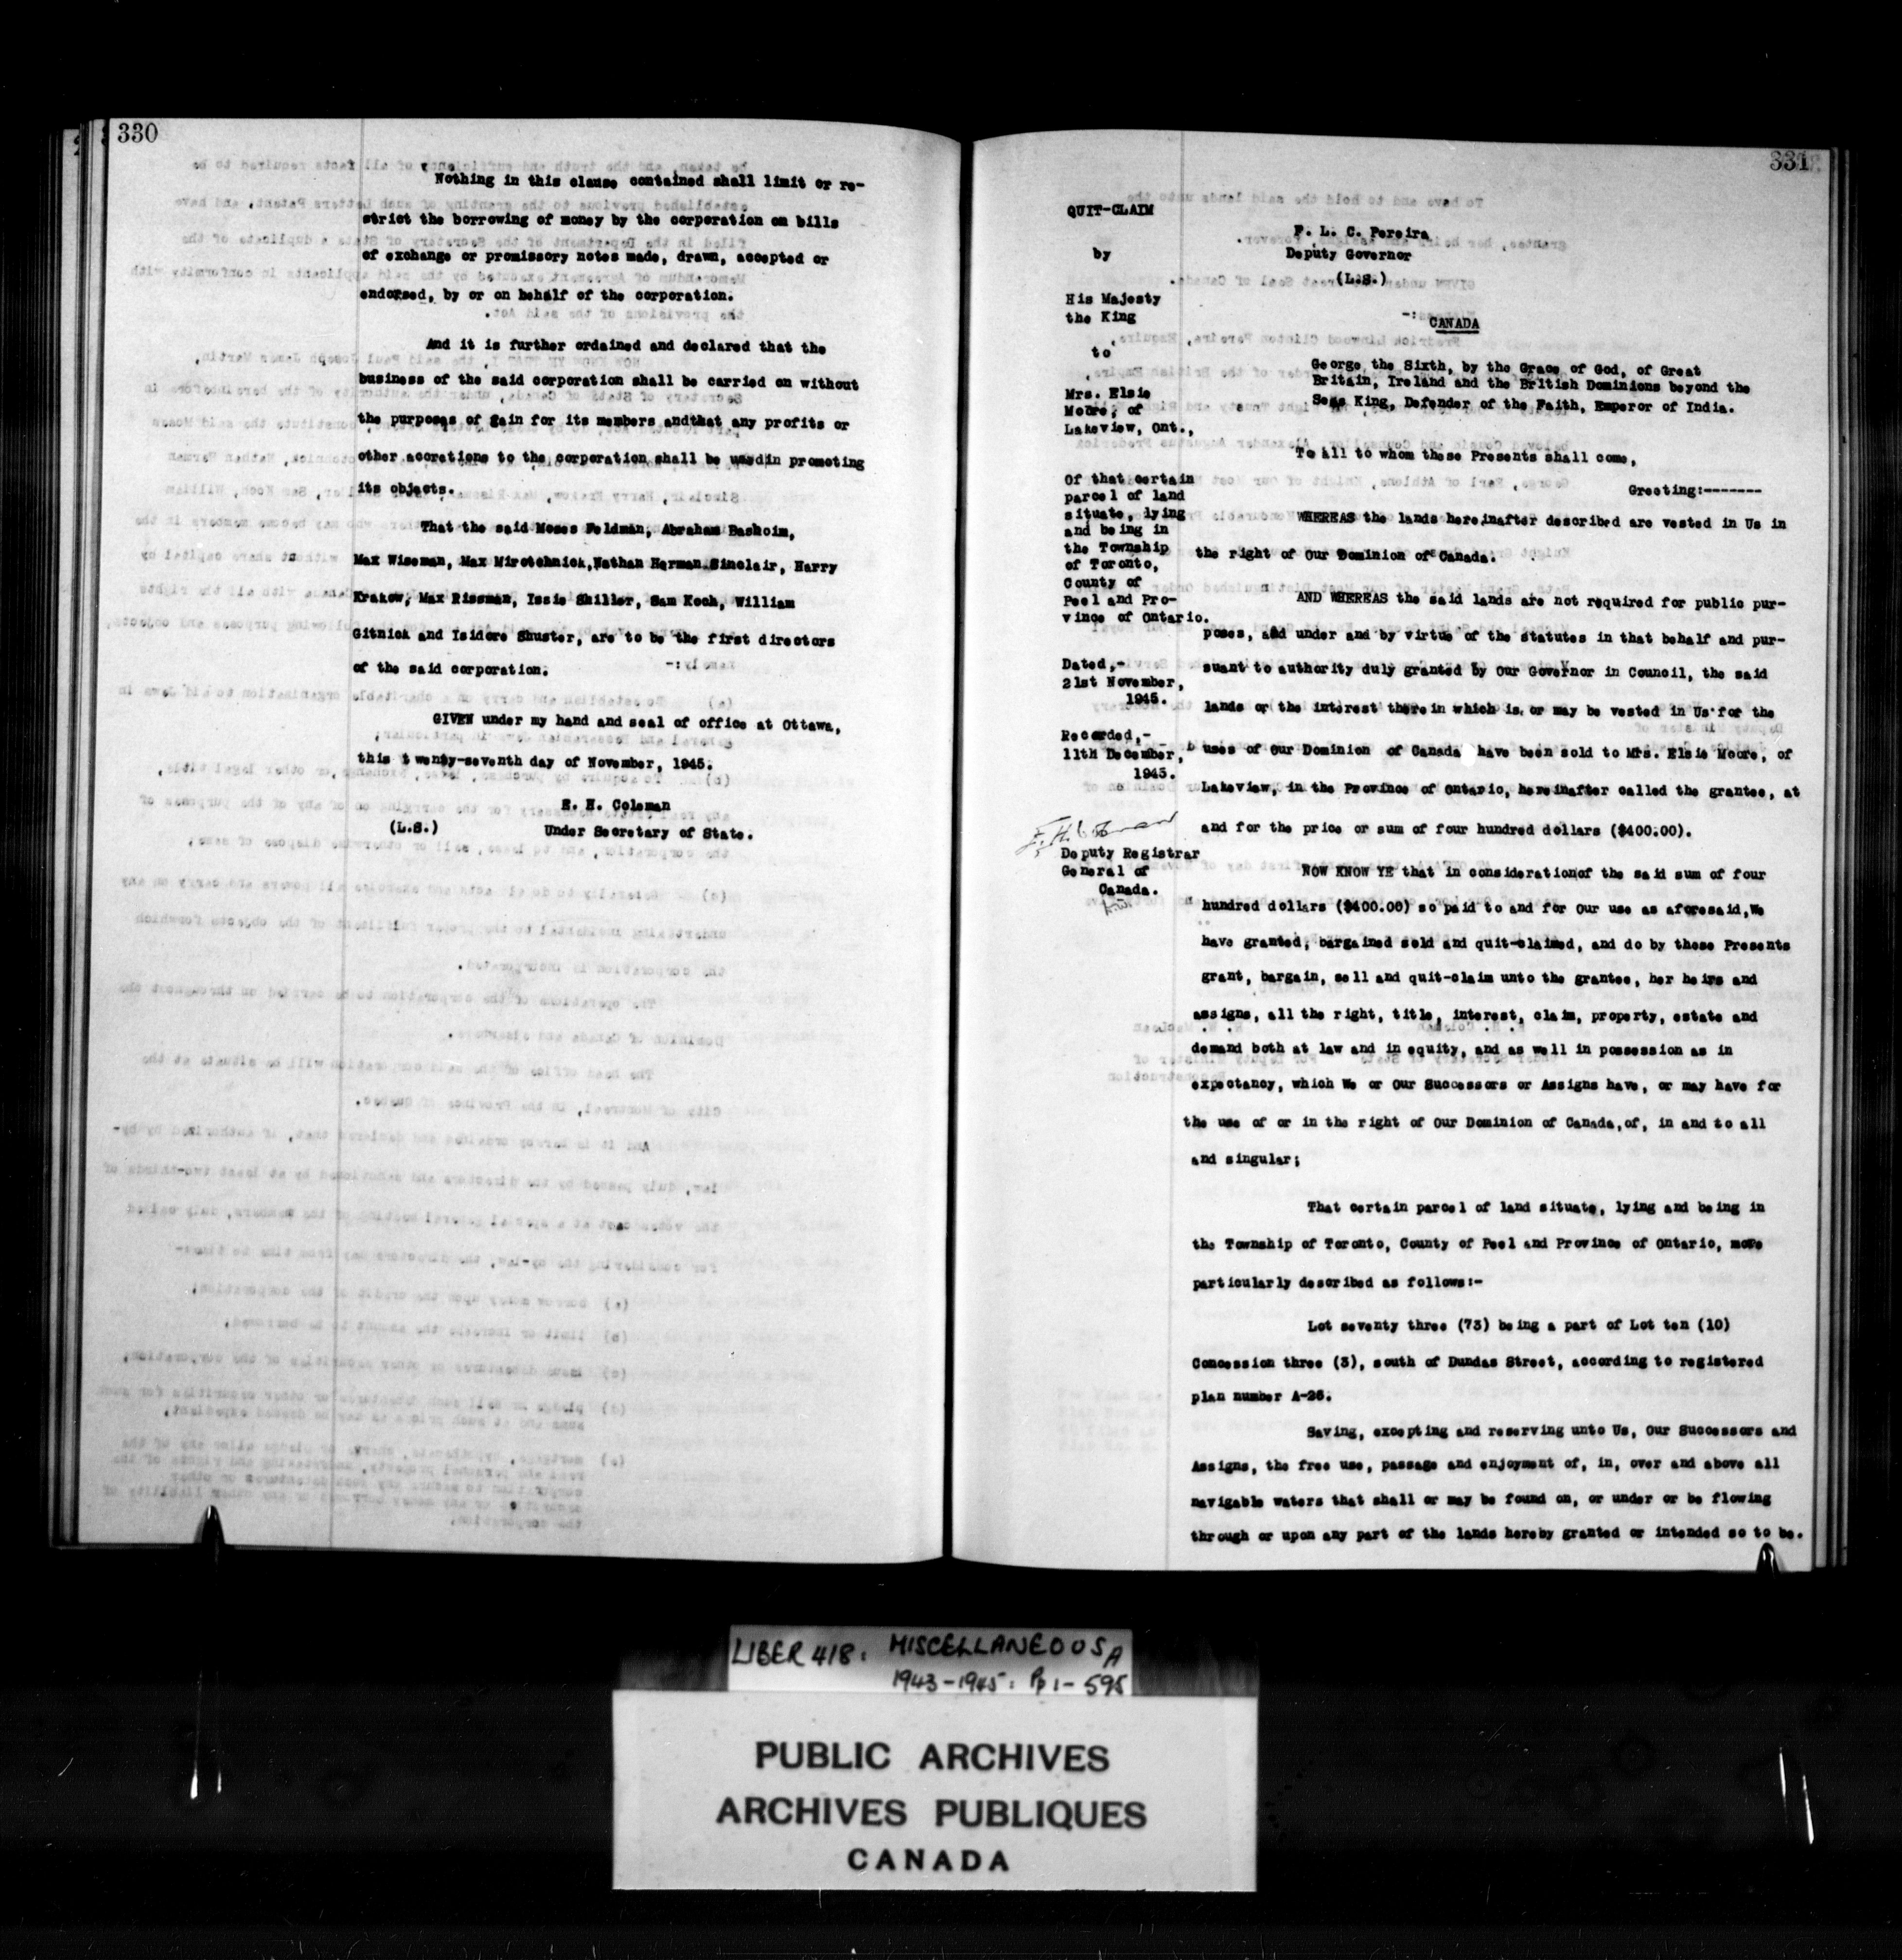 330
Nothing in this clause contained shall limit or re-
strict the borrowing of money by the corporation on bills
of exchange or promissory notes made, drawn, accepted or
endorsed, by or on behalf of the corporation.
And it is further ordained and declared that the
business of the said corporation shall be carried on without
the purposes of gain for its members andthat any profits or
other accretions to the corporation shall be usedin promoting
its objects.
That the said Moses Feldman, Abraham Bashoim,
Max Wiseman, Max Mirotchnick, Nathan Herman Sinclair, Harry
Krakow, Max Rissman, Issie Shiller, Sam Koch, William
Gitnick and Isidore Shuster, are to be the first directors
of the said corporation.
GIVEN under my hand and seal of office at Ottawa,
this twenty-seventh day of November, 1945.
E. H. Coleman
(L.S.) Under Secretary of State.
331
QUIT-CLAIM
by
His Majesty
the King
to
Mrs. Elsie
Moore, of
Lakeview, Ont.,
Of that certain
parcel of land
situate, lying
and being in
the Township
of Toronto,
County of
Peel and Pro-
vince of Ontario.
Dated,-
21st November,
1945.
Recorded,-
11th December,
1945.
Deputy Registrar
General of
Canada.
F. L. C. Pereira
Deputy Governor
(L.S.)
CANADA
George the Sixth, by the Grace of God, of Great
Britain, Ireland and the British Dominions beyond the
Seas King, Defender of the Faith, Emperor of India.
To all to whom these Presents shall come,
Greeting:-------
WHEREAS the lands hereinafter described are vested in Us in
the right of Our Dominion of Canada.
AND WHEREAS the said lands are not required for public pur-
poses, and under and by virtue of the statutes in that behalf and pur-
suant to authority duly granted by Our Governor in Council, the said
lands or the interest therein which is or may be vested in Us for the
uses of Our Dominion of Canada have been sold to Mrs. Elsie Moore, of
Lakeview, in the Province of Ontario, hereinafter called the grantee, at
and for the price or sum of four hundred dollars ($400.00).
NOW KNOW YE that in considerationof the said sum of four
hundred dollars ($400.00) so paid to and for Our use as aforesaid, We
have granted, bargained sold and quit-claimed, and do by these Presents
grant, bargain, sell and quit-claim unto the grantee, her heirs and
assigns, all the right, title, interest, claim, property, estate and
demand both at law and in equity, and as well in possession as in
expectancy, which We or Our Successors or Assigns have, or may have for
the use of or in the right of Our Dominion of Canada, of, in and to all
and singular;
That certain parcel of land situate, lying and being in
the Township of Toronto, County of Peel and Province of Ontario, more
particularly described as follows:-
Lot seventy three (73) being a part of Lot ten (10)
Concession three (3), south of Dundas Street, according to registered
plan number A-26.
Saving, excepting and reserving unto Us, Our Successors and
Assigns, the free use, passage and enjoyment of, in, over and above all
navigable waters that shall or may be found on, or under or be flowing
through or upon any part of the lands hereby granted or intended so to be.
LIBER 418: MISCELLANEOUS A
1943-1945: Pp 1-595
PUBLIC ARCHIVES
ARCHIVES PUBLIQUES
CANADA